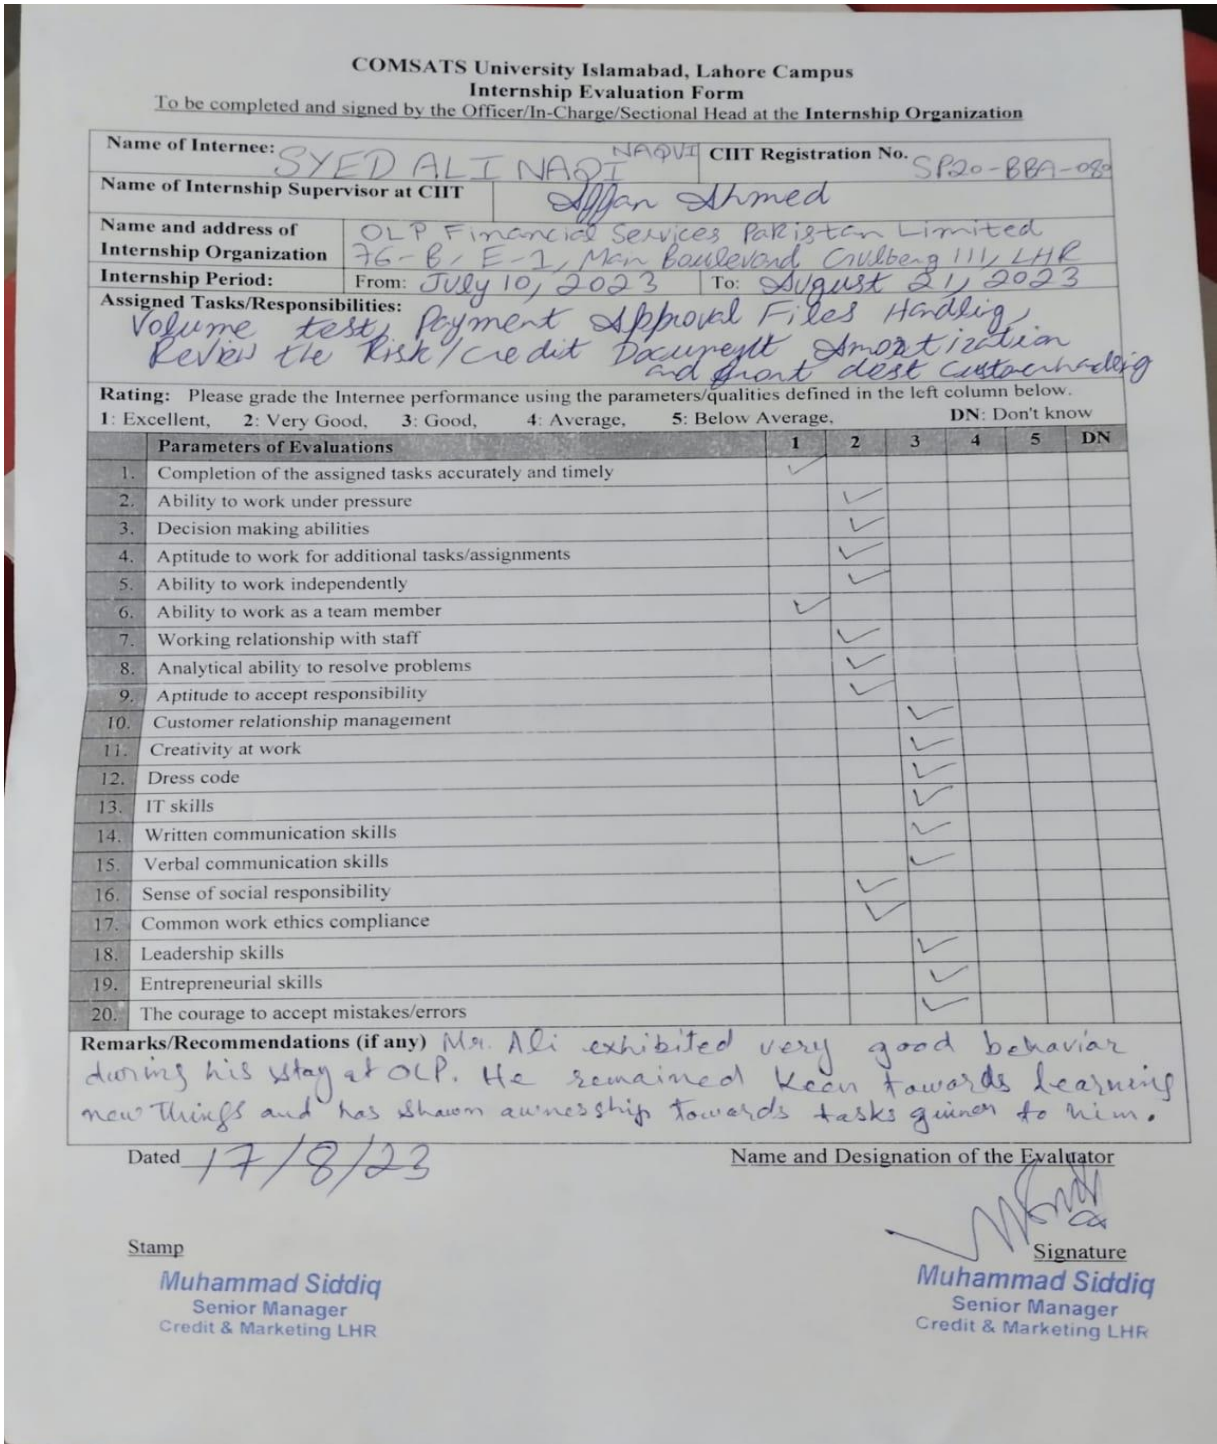 COMSATS University Islamabad, Lahore Campus
Internship Evaluation Form
To be completed and signed by the Officer/In-Charge/Sectional Head at the Internship Organization
Name of Internee: SYED ALI NAQI NAQVI CIIT Registration No. SP20-BBA-080
Name of Internship Supervisor at CIIT Affan Ahmed
Name and address of OLP Financial Services Pakistan Limited
Internship Organization 76-B, E-1, Main Boulevard Gulberg III, LHR
Internship Period: From: July 10, 2023 To: August 21, 2023
Assigned Tasks/Responsibilities:
Volume test, Payment Approval Files Handlig,
Review the Risk/credit Document Amortization
and front
Rating: Please grade the Internee performance using the parameters/qualities defined in the left column below.
1: Excellent, 2: Very Good, 3: Good, 4: Average, 5: Below Average, DN: Don't know
Parameters of Evaluations 1 2 3 4 5 DN
1. Completion of the assigned tasks accurately and timely
2. Ability to work under pressure
3. Decision making abilities
4. Aptitude to work for additional tasks/assignments
5. Ability to work independently
6. Ability to work as a team member
7. Working relationship with staff
8. Analytical ability to resolve problems
9. Aptitude to accept responsibility
10. Customer relationship management
11. Creativity at work
12. Dress code
13. IT skills
14. Written communication skills
15. Verbal communication skills
16. Sense of social responsibility
17. Common work ethics compliance
18. Leadership skills
19. Entrepreneurial skills
20. The courage to accept mistakes/errors
Remarks/Recommendations (if any) Mr. Ali exhibited very good behavior
during his stay at OLP. He remained keen towards learning
new things and has shown ownership towards tasks given to him.
Dated 17/8/23 Name and Designation of the Evaluator
Stamp Signature
Muhammad Siddiq Muhammad Siddiq
Senior Manager Senior Manager
Credit & Marketing LHR Credit & Marketing LHR